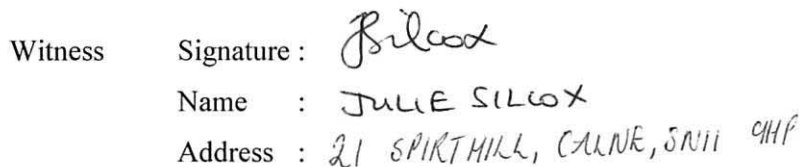 Witness Signature : JSilcox
Name : JULIE SILCOX
Address : 21 SPIRTHILL, CALNE, SN11 9HP